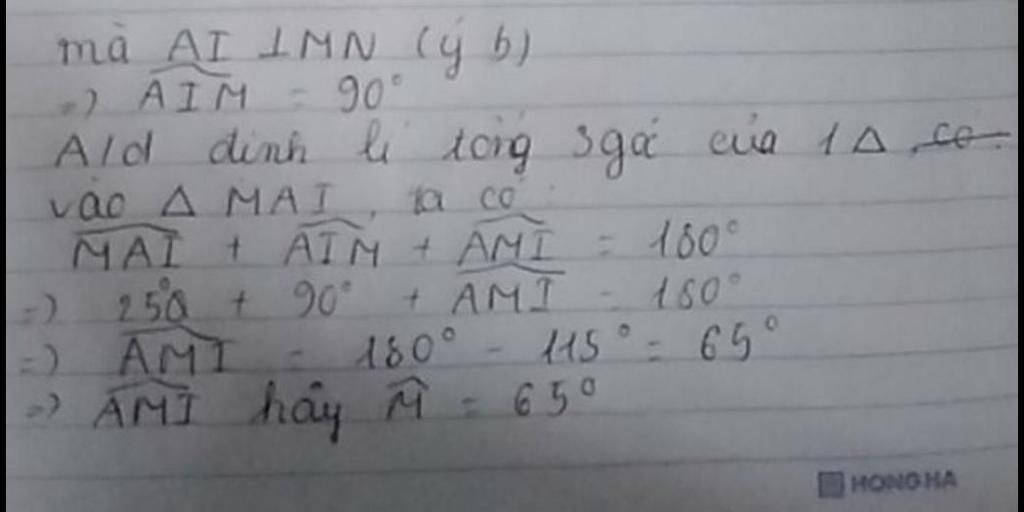 mà AI ⊥ MN (ý b)
=) \widehat{AIM} = 90°
A/d định lí tổng 3 gá của 1 Δ, có
vào Δ MAI, ta có:
\widehat{MAI} + \widehat{AIM} + \widehat{AMI} = 180°
=) 25° + 90° + \widehat{AMI} = 180°
=) \widehat{AMI} = 180° - 115° = 65°
=) \widehat{AMI} hây \widehat{M} = 65°
HONG HA